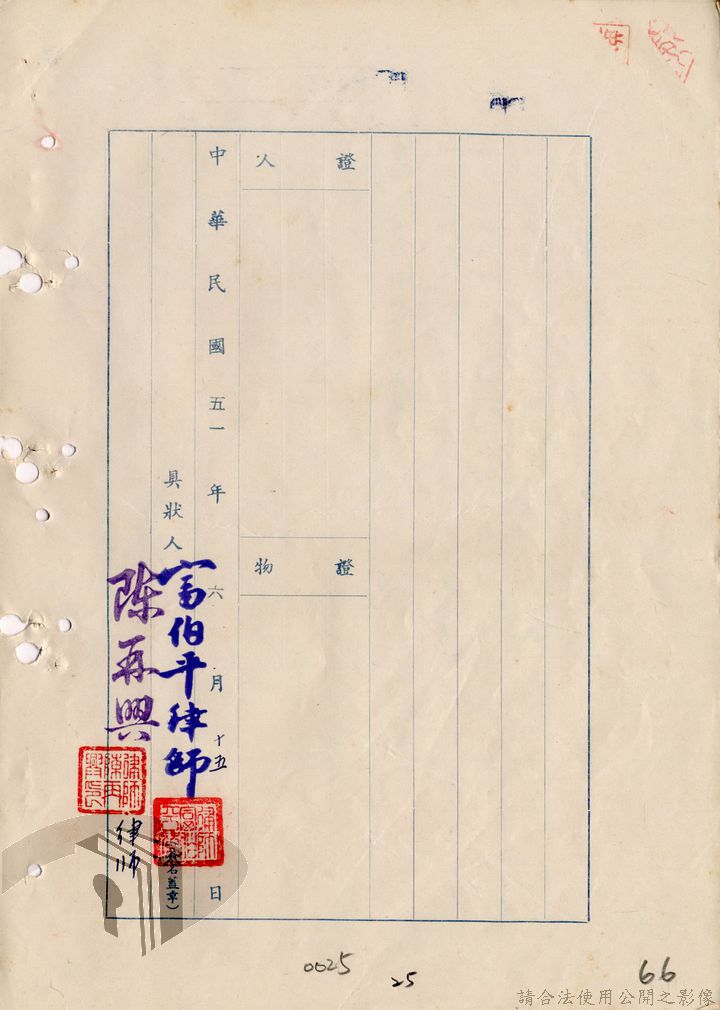 證人
證物
中華民國五一年六月十五日
具狀人
富伯平律師
陳再興
律師
律師陳再興印
簽名蓋章）
0025
25
66
請合法使用公開之影像